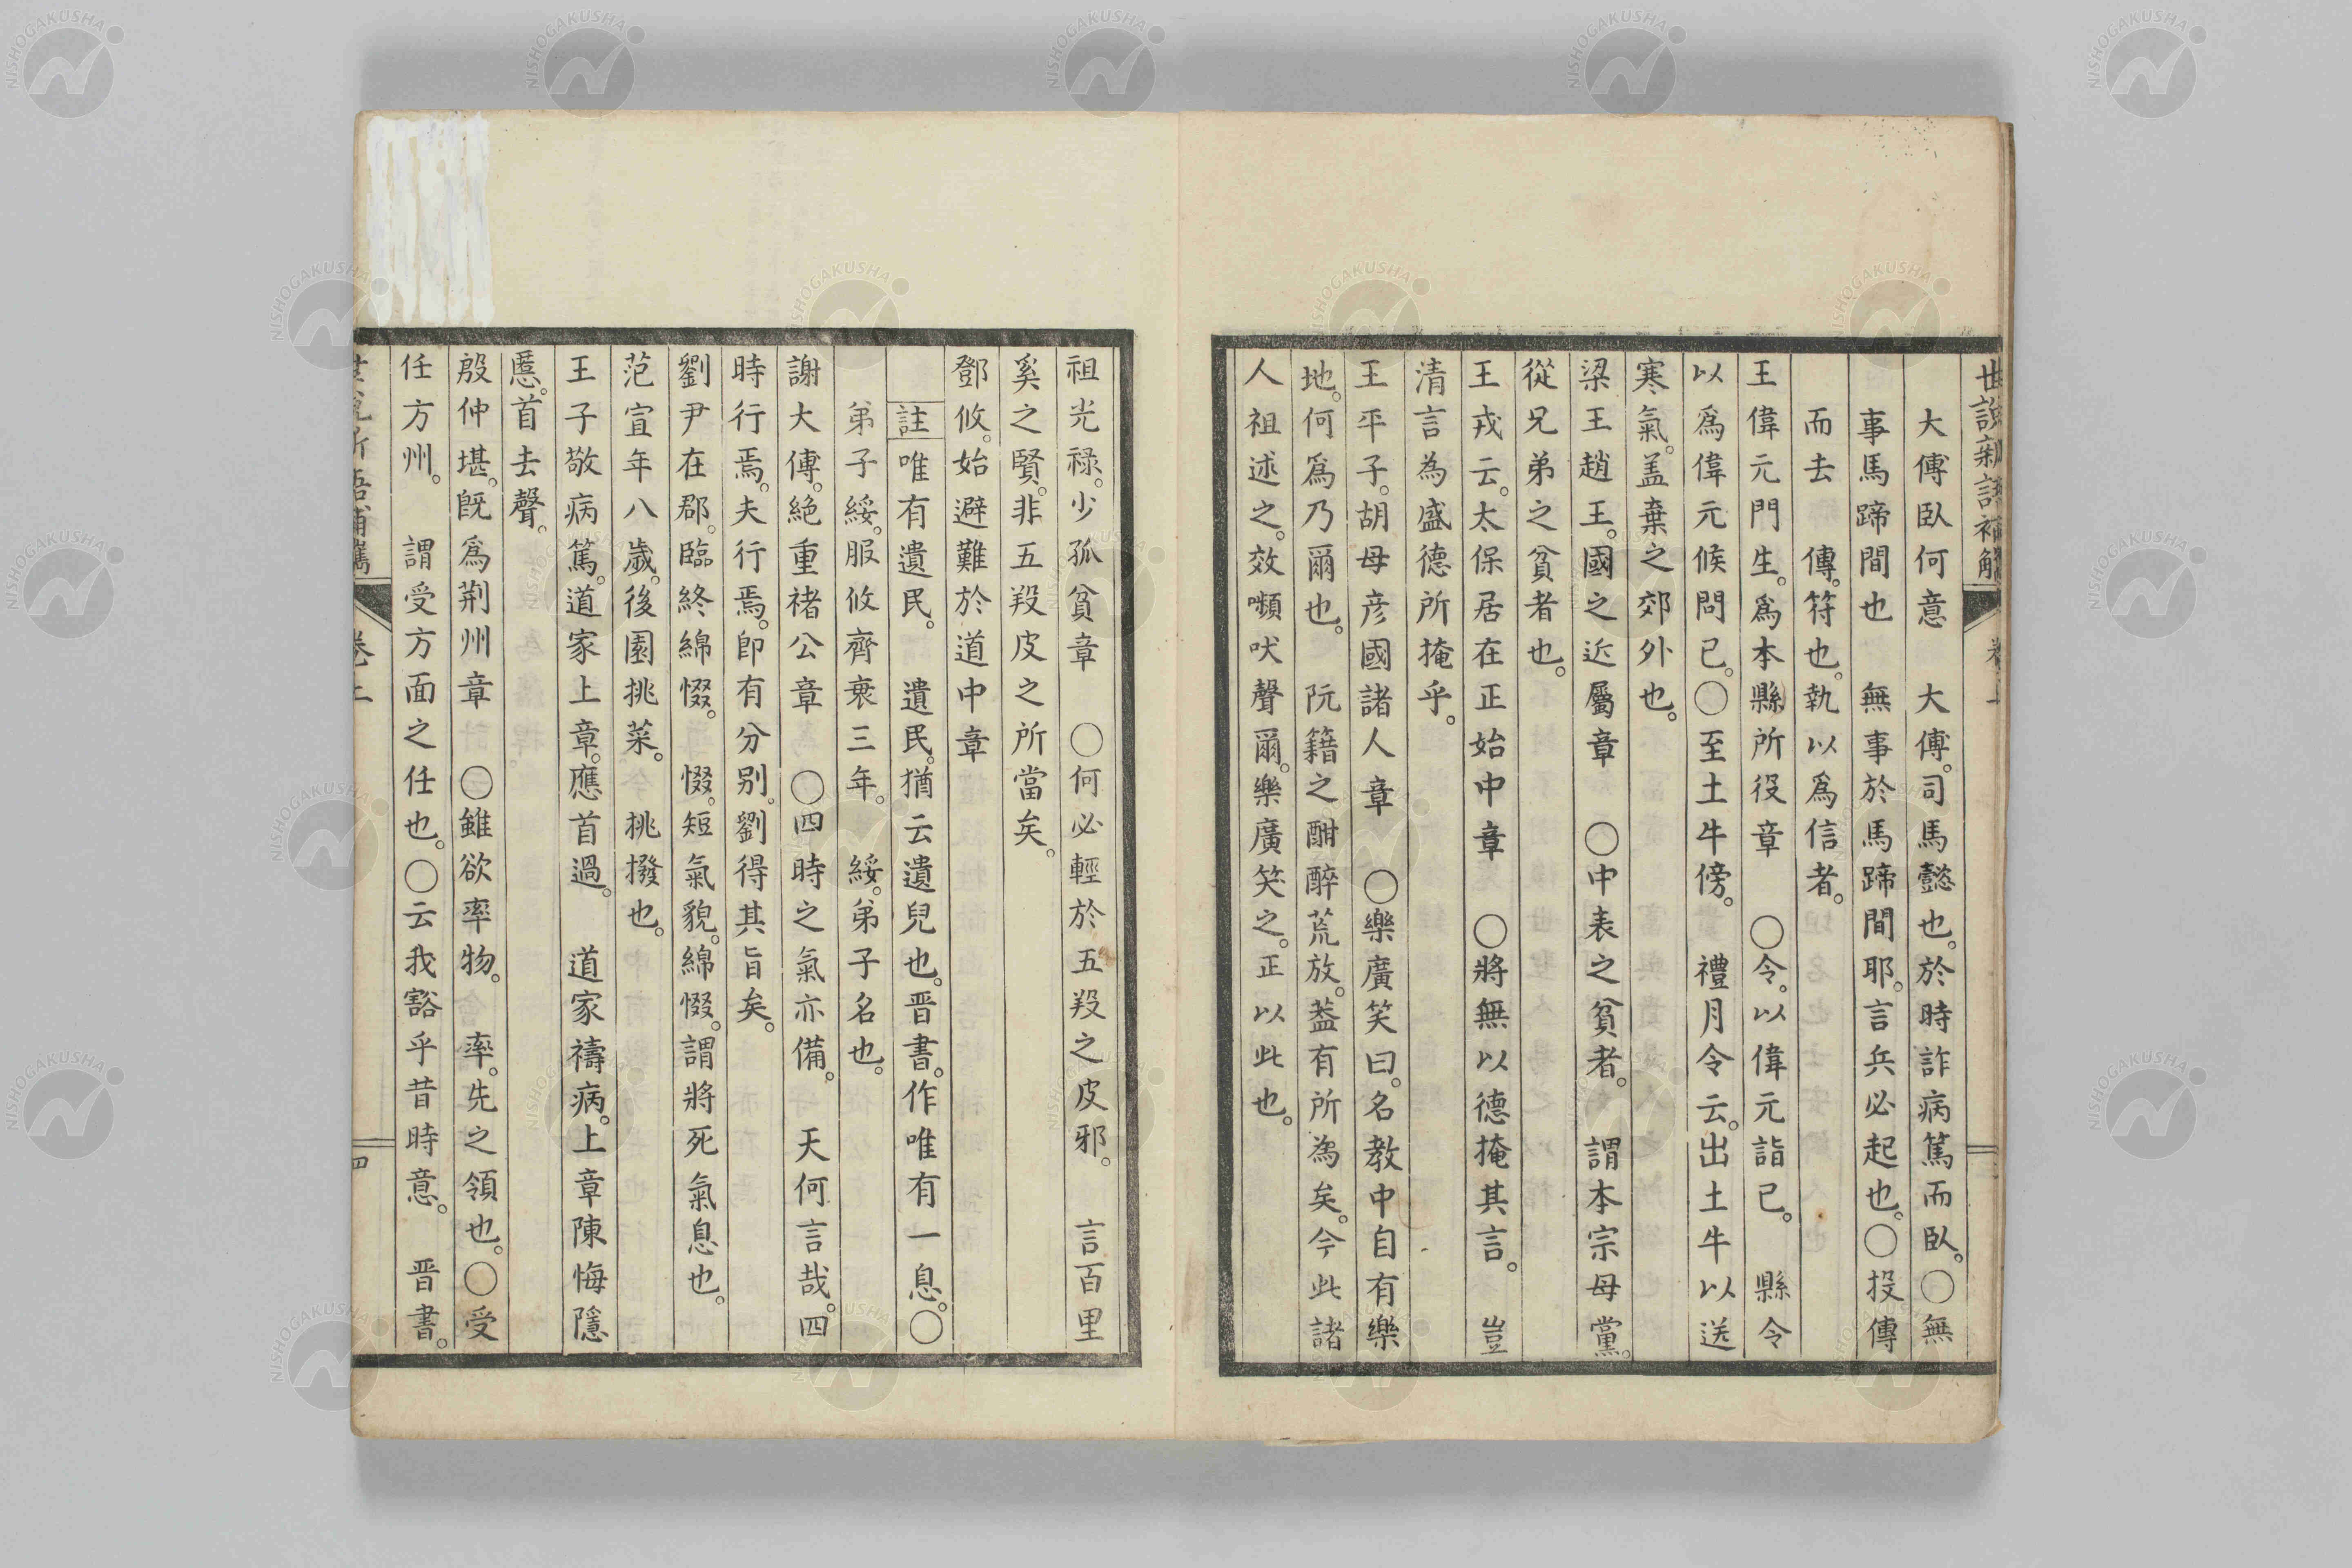 世說新語補觽
卷上
大傅臥何意　大傅。司馬懿也。於時詐病篤而臥。〇無
事馬蹄間也　無事於馬蹄間耶。言兵必起也。〇投傳
而去　傳。符也。執以爲信者。
王偉元門生。爲本縣所役章　〇令。以偉元詣已。　縣令
以爲偉元候問已。〇至土牛傍。　禮月令云。出土牛以送
寒氣。盖棄之郊外也。
梁王趙王。國之近屬章　〇中表之貧者。　謂本宗母黨。
從兄弟之貧者也。
王戎云。太保居在正始中章　〇將無以德掩其言。　豈
清言為盛德所掩乎。
王平子。胡母彦國諸人章　〇樂廣笑曰。名教中自有樂
地。何爲乃爾也。　阮籍之酣醉荒放。葢有所為矣。今此諸
人祖述之。效嚬吠聲爾。樂廣笑之。正以此也。
祖光禄。少孤貧章　〇何必輕於五羖之皮邪。　言百里
奚之賢。非五羖皮之所當矣。
鄧攸。始避難於道中章
註唯有遺民。　遺民。猶云遺兒也。晋書。作唯有一息。〇
弟子綏。服攸齊衰三年。　綏。弟子名也。
謝大傅。絶重褚公章　〇四時之氣亦備。　天何言哉。四
時行焉。夫行焉。卽有分别。劉得其旨矣。
劉尹在郡。臨終綿惙。　惙。短氣貌。綿惙。謂將死氣息也。
范宣年八歲。後園挑菜。　挑撥也。
王子敬病篤。道家上章。應首過。　道家禱病。上章陳悔隱
慝。首去聲。
殷仲堪。既爲荆州章　〇雖欲率物。　率。先之領也。〇受
任方州。　謂受方面之任也。〇云我豁乎昔時意。　晋書。
卷上
四